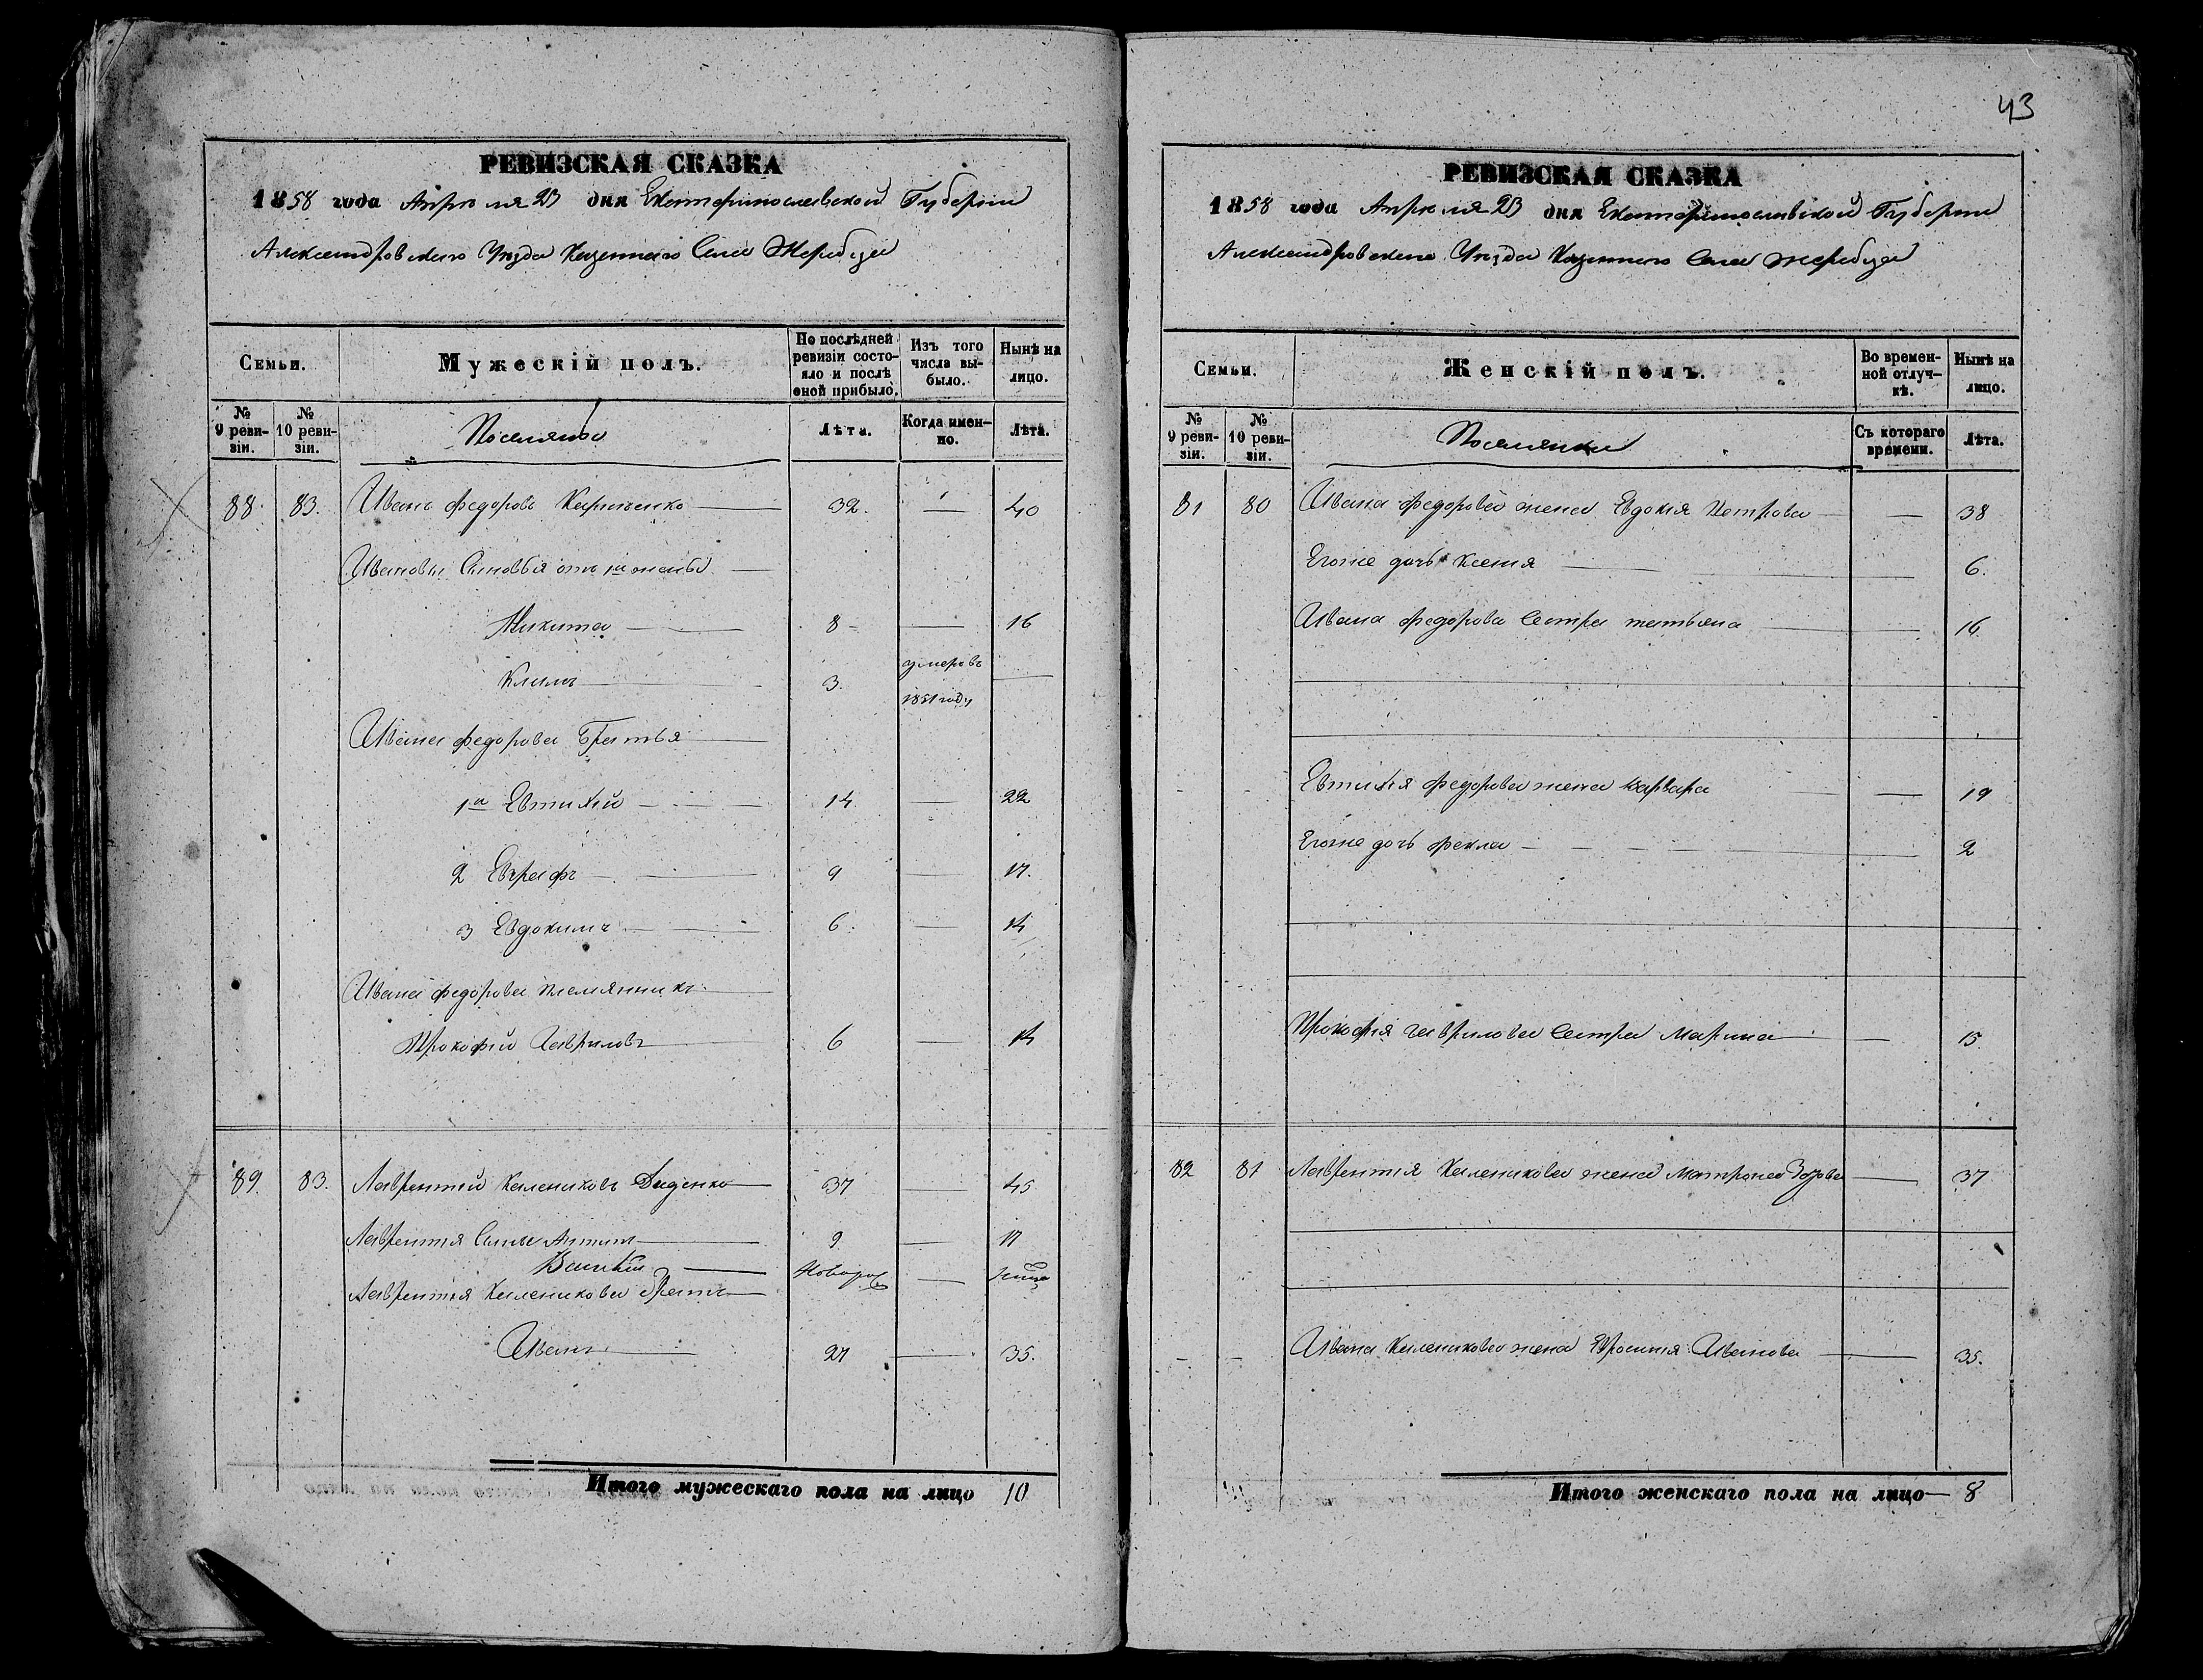 РЕВИЗСКАЯ СКАЗКА
1858 года Апреля 23 дня Екатеринославской Губернии
Александровского Уезда Казенного Села Жеребца
Семьи.
Мужескій полъ.
По послѣдней ревизіи состояло и послѣ оной прибыло.
Изъ того числа выбыло.
Нынѣ на лицо.
№ 9 ревизіи.
№ 10 ревизіи.
Поселяне
Лѣта.
Когда именно.
Лѣта.
88. 83. Иванъ Федоровъ Кириченко 32. — 40
Ивановы Сыновья отъ 1й жены
Никита 8 — 16
Климъ 3. умеръ въ 1851 году —
Ивана Федорова Братья
1й Евтихій 14 — 22
2 Евграфъ 9 — 17.
3 Евдокимъ 6 — 14
Ивана Федорова племянникъ
Прокофій Гавриловъ 6 — 14
89. 83. Лаврентій Калениковъ Диденко 37 — 45
Лаврентія Сынъ Антонъ 9 — 17
Василій новорож —
Лаврентія Каленикова Братъ
Иванъ 27 — 35.
Итого мужескаго пола на лицо 10
43
РЕВИЗСКАЯ СКАЗКА
1858 года Апреля 23 дня Екатеринославской Губернии
Александровского Уезда Казенного Села Жеребца
Семьи.
Женскій полъ.
Во временной отлучкѣ.
Нынѣ на лицо.
№ 9 ревизіи.
№ 10 ревизіи.
Поселянки
Съ котораго времени.
Лѣта.
81 80 Ивана Федорова жена Евдокія Петрова — 38
Егоже дочь Ксенія — 6.
Ивана Федорова Сестра татьяна 16.
Евтихія Федорова жена варвара — 19
Егоже дочь фекла 2
Прокофія гаврилова Сестра Марина — 15.
82 81 Лаврентія Каленикова жена Матрона — 37
Ивана Каленикова жена Ефросинія Иванова — 35.
Итого женскаго пола на лицо — 8